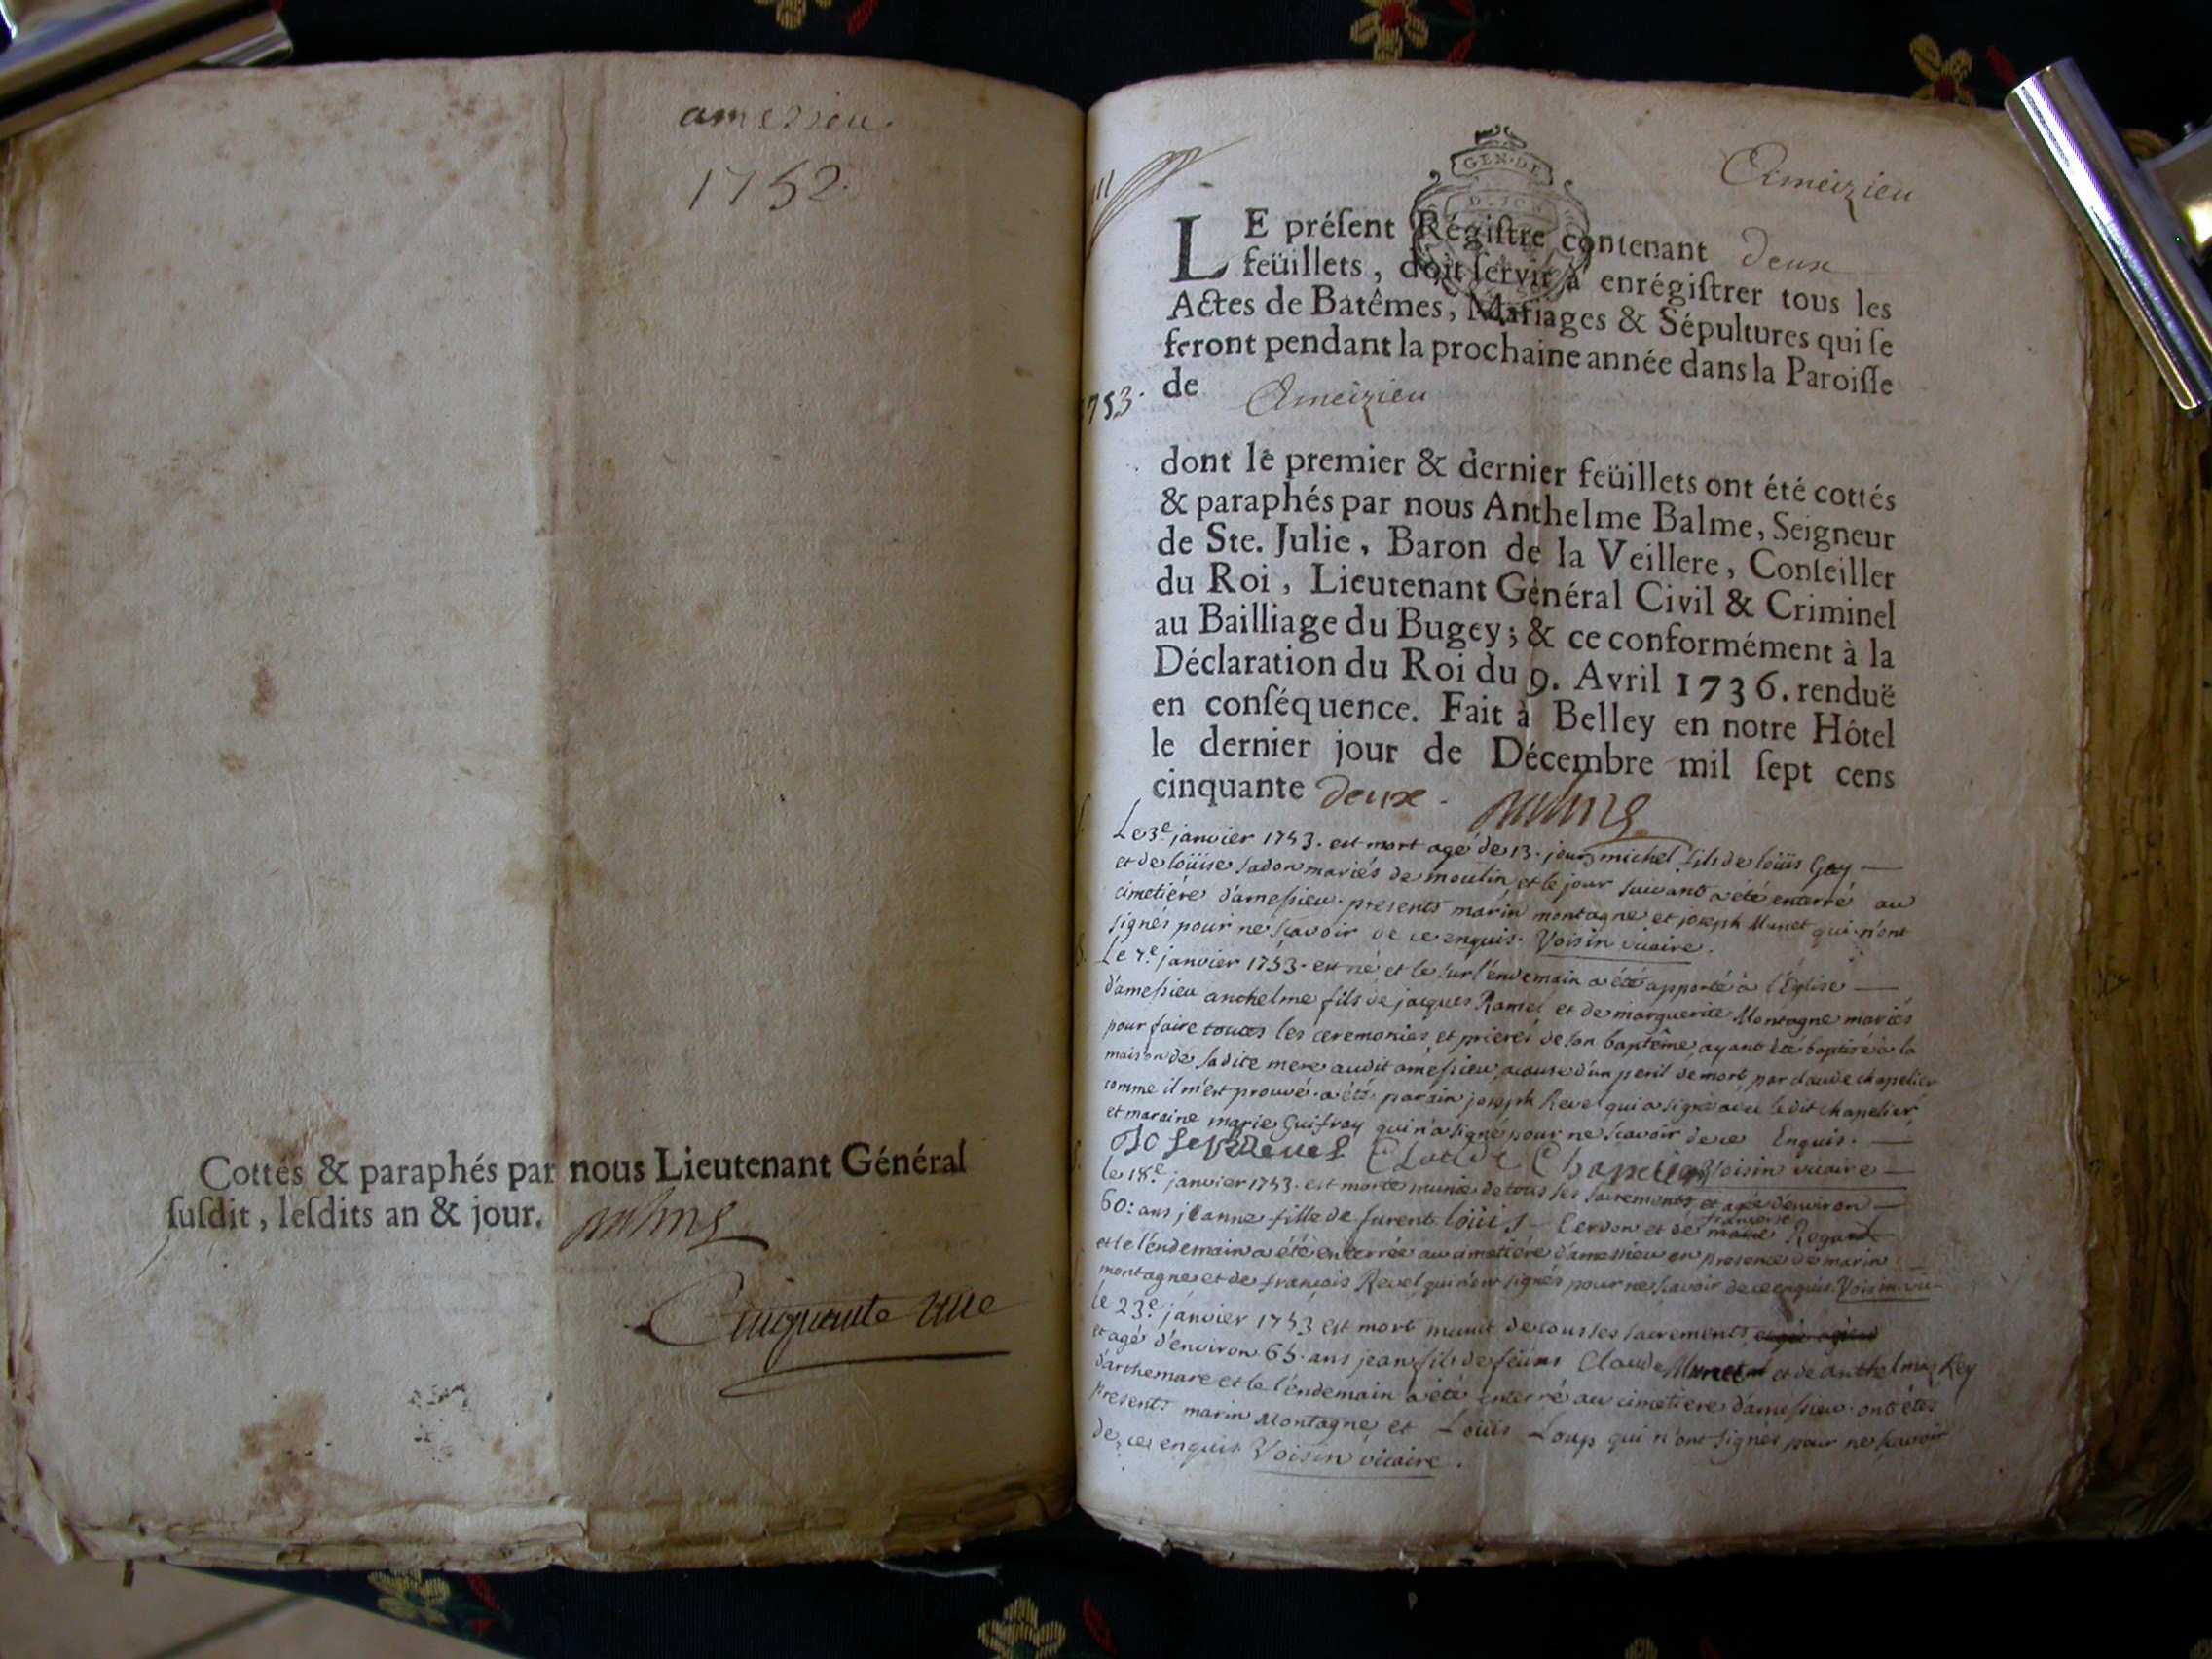 amessieu.
1752.
Cottés & paraphés par nous Lieutenant Général
ſuſdit, leſdits an & jour.
Balme
Cinquante une
GEN. DE
DIJON
Ameizieu
LE préſent Régiſtre contenant deux
feüillets, doit ſervir à enrégiſtrer tous les
Actes de Batêmes, Mariages & Sépultures qui ſe
feront pendant la prochaine année dans la Paroiſſe
1753. de Ameizieu
dont le premier & dernier feüillets ont été cottés
& paraphés par nous Anthelme Balme, Seigneur
de Ste. Julie, Baron de la Veillere, Conſeiller
du Roi, Lieutenant Général Civil & Criminel
au Bailliage du Bugey; & ce conformément à la
Déclaration du Roi du 9. Avril 1736. renduë
en conſéquence. Fait à Belley en notre Hôtel
le dernier jour de Décembre mil ſept cens
cinquante deux. Balme
Le 3e janvier 1753. est mort agé de 13. jours michel fils de loüis Goy
et de loüise sadon mariés de moulin, et le jour suivant a été enterré au
cimetiére d'amessieu. presents marin montagne et joseph Munet qui n'ont
signés pour ne sçavoir de ce enquis. Voisin vicaire.
Le 7e janvier 1753. est né et le surlendemain a été apporté à l'Église
d'amessieu anthelme fils de jacques Ramel et de marguerite Montagne mariés
pour faire toutes les ceremonies et prieres de son baptême, ayant été baptisé à la
maison de sadite mere audit amessieu, acause d'un peril de mort par claude chapelier
comme il m'est prouvé. a été parain joseph Revel qui a signé avec ledit chapelier,
et maraine marie Guifray qui n'a signé pour ne sçavoir de ce Enquis.
Joseph Revel Claude Chapelier Voisin vicaire
le 18e janvier 1753. est morte munie de tous ses sacrements et agée d'environ
60. ans jeanne fille de furent loüis Cerdon et de françoise Regard
et le l'endemain a été enterrée au cimetiére d'amessieu en presence de marin
montagne et de françois Revel qui n'ont signés pour ne sçavoir de ce enquis. Voisin vic.
le 23e janvier 1753 est mort munit de tous ses sacrements
et agé d'environ 65. ans jean fils de feüns Claude Munet et de anthelma Rey
d'arthemare et le l'endemain a été enterré au cimetiere d'amessieu. ont étés
presents marin Montagne et Loüis Loup qui n'ont signés pour ne sçavoir
de ce enquis Voisin vicaire.